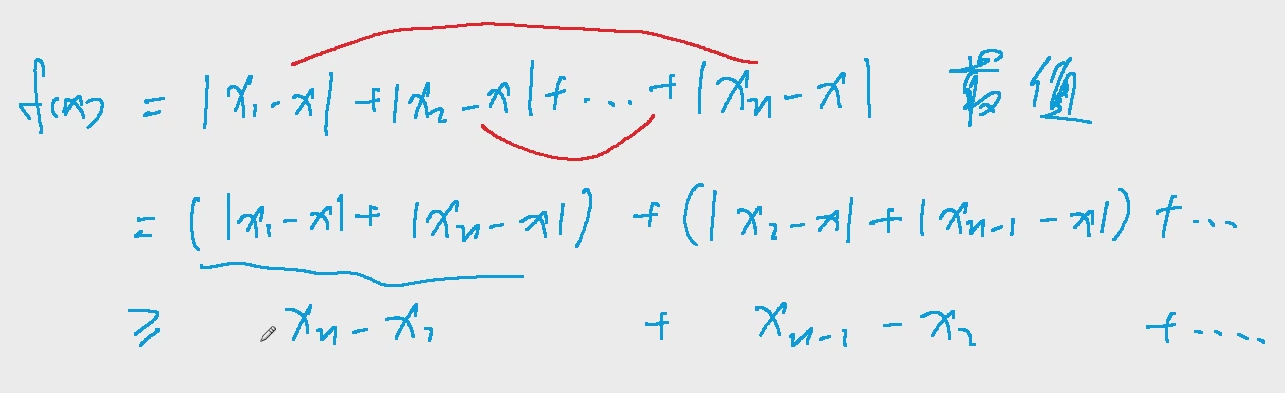 f(x) = |x₁ - x| + |x₂ - x| + ... + |xₙ - x| 最值
= (|x₁ - x| + |xₙ - x|) + (|x₂ - x| + |xₙ₋₁ - x|) + ...
≥ xₙ - x₁ + xₙ₋₁ - x₂ + ....